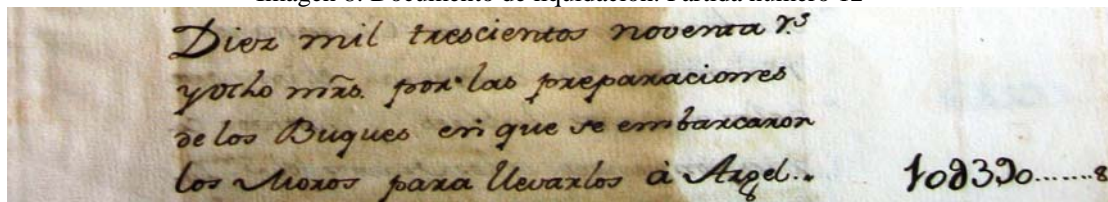 Diez mil trescientos noventa r.s
y ocho mrs. por las preparaciones
de los Buques en que se embarcaron
los Moros para llevarlos à Argel.. 10∂390........8